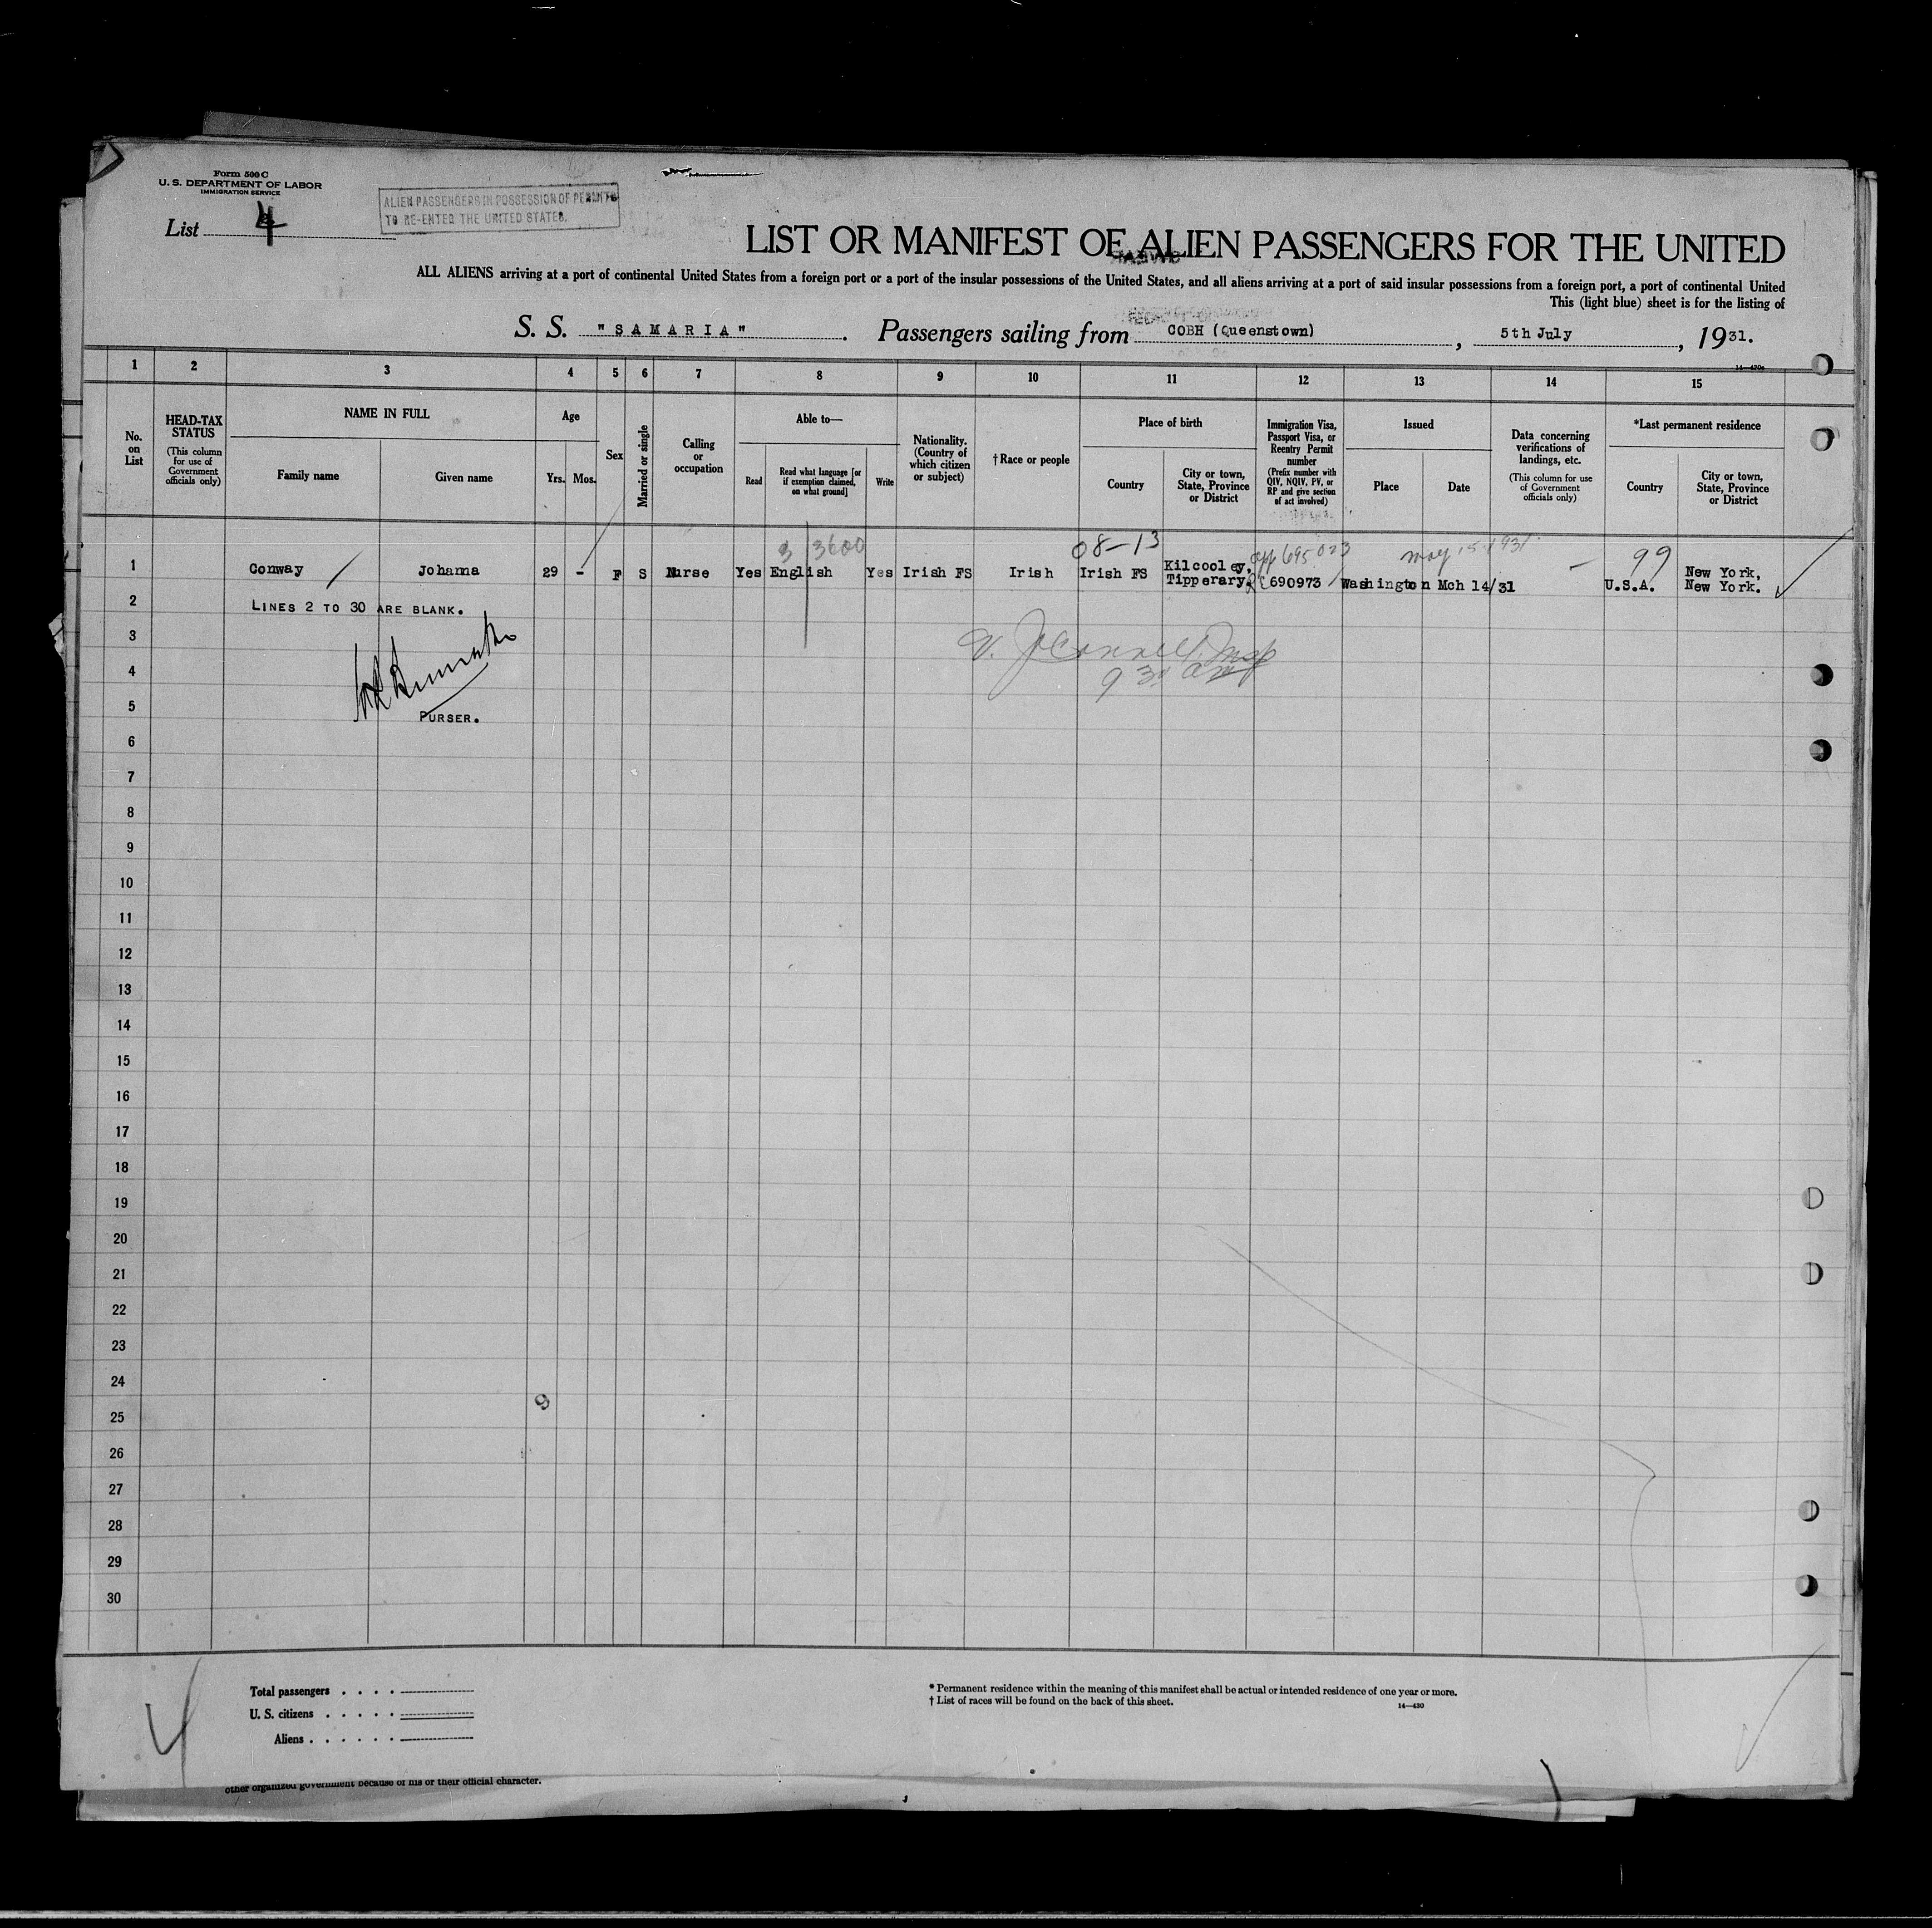 Form 500 C
U. S. DEPARTMENT OF LABOR
IMMIGRATION SERVICE
ALIEN PASSENGERS IN POSSESSION OF PERMITS
TO RE-ENTER THE UNITED STATES.
List 4
LIST OR MANIFEST OF ALIEN PASSENGERS FOR THE UNITED
ALL ALIENS arriving at a port of continental United States from a foreign port or a port of the insular possessions of the United States, and all aliens arriving at a port of said insular possessions from a foreign port, a port of continental United
This (light blue) sheet is for the listing of
S. S. "SAMARIA". Passengers sailing from COBH (Queenstown), 5th July, 1931.
14—430a
1 2 3 4 5 6 7 8 9 10 11 12 13 14 15
No. on List
HEAD-TAX STATUS
(This column for use of Government officials only)
NAME IN FULL
Family name
Given name
Age
Yrs. Mos.
Sex
Married or single
Calling or occupation
Able to—
Read
Read what language [or if exemption claimed, on what ground]
Write
Nationality. (Country of which citizen or subject)
† Race or people
Place of birth
Country
City or town, State, Province or District
Immigration Visa, Passport Visa, or Reentry Permit number
(Prefix number with QIV, NQIV, PV, or RP and give section of act involved)
Issued
Place
Date
Data concerning verifications of landings, etc.
(This column for use of Government officials only)
*Last permanent residence
Country
City or town, State, Province or District
3 3600 08-13 app 695023 May 15-1931 99
1 Conway Johanna 29 - F S Nurse Yes English Yes Irish FS Irish Irish FS Kilcooley, Tipperary. 690973 Washington Mch 14/31 U.S.A. New York, New York.
2 LINES 2 TO 30 ARE BLANK.
3
4
9 30 am
5
PURSER.
6
7
8
9
10
11
12
13
14
15
16
17
18
19
20
21
22
23
24
25
26
27
28
29
30
Total passengers . . . .
U. S. citizens . . . . .
Aliens . . . . . .
* Permanent residence within the meaning of this manifest shall be actual or intended residence of one year or more.
† List of races will be found on the back of this sheet.
14—430
other organized government because of his or their official character.